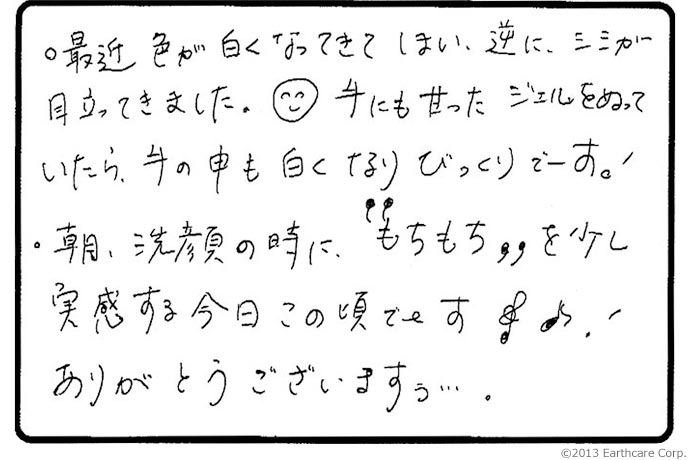 ○最近 色が 白くなってきて しまい、逆に、シミが
目立ってきました。 手にも せった ジェルをぬって
いたら、手の甲も 白く なり びっくりでーす。！
・朝、洗顔の時に、"もちもち„を少し
実感する今日この頃でーす ♪！
ありがとうございますぅ…。
©2013 Earthcare Corp.